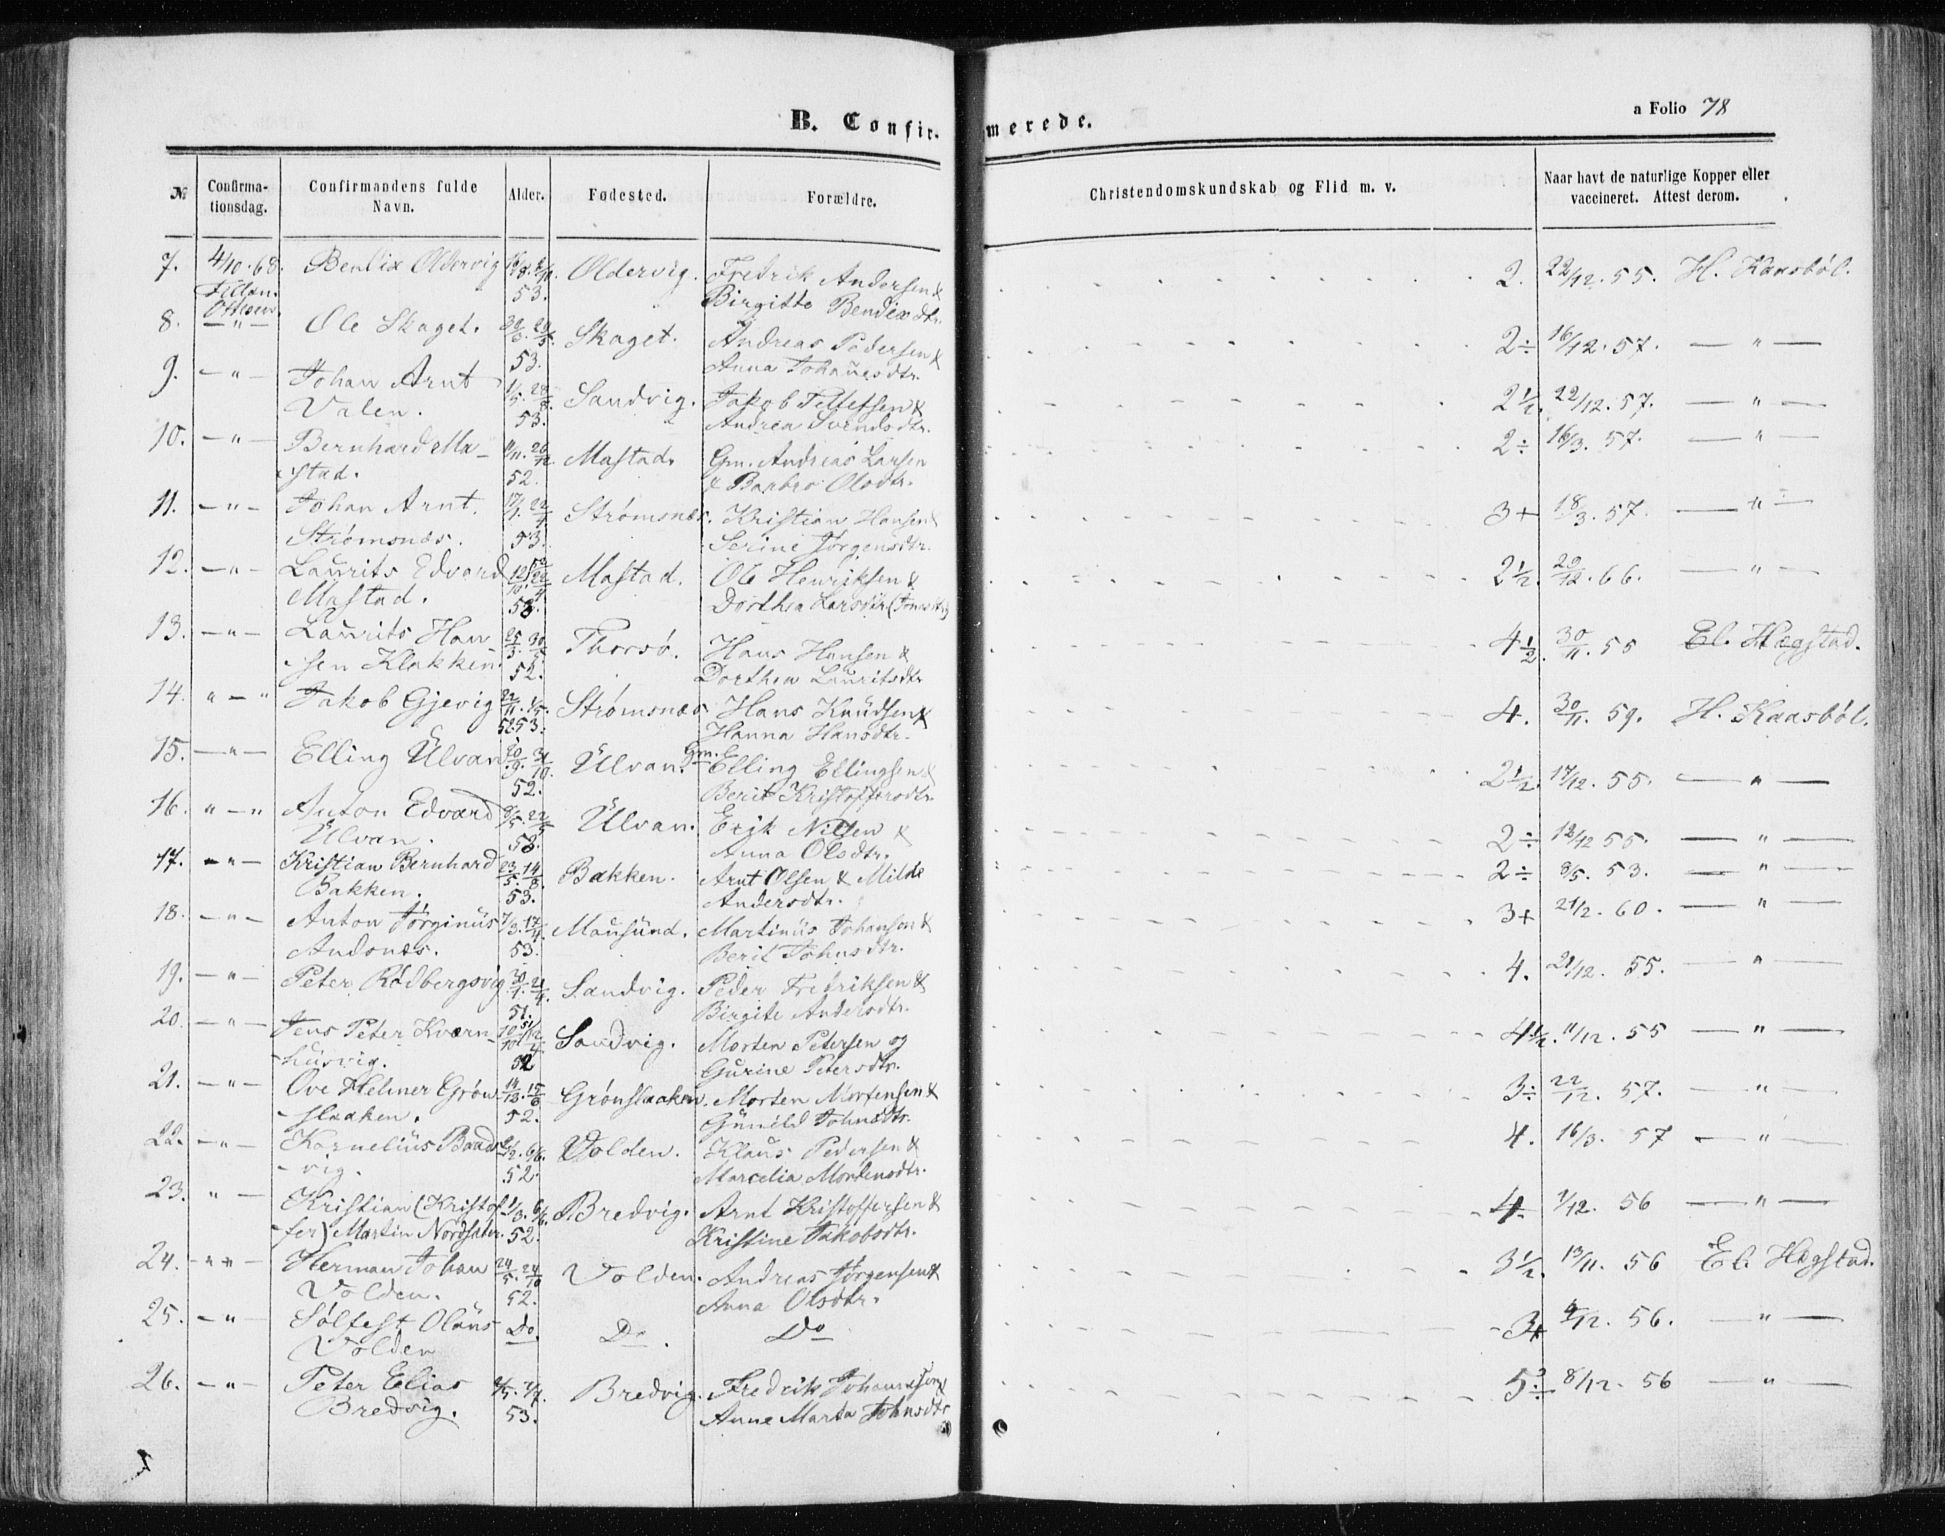 B. Confir-merede.
a Folio 78
№ Confirma-tionsdag. Confirmandens fulde Navn. Alder. Fødested. Forældre. Christendomskundskab og Flid m. v. Naar havt de naturlige Kopper eller vaccineret. Attest derom.
7. 4/10.68. Bendix Oldervig Oldervig. Fredrik Andersen & 2. 22/12.55. H. Kaasbøl.
53. Birgitte Bendixdtr.
8. — " — Ole Skaget. Skaget. Andreas Pedersen & 2÷ 16/12.57. — " —
53. Anna Johanesdtr.
9. — " — Johan Arnt Sandvig. Jakob 2½. 22/12.57. — " —
Valen. 53. Andrea Svendsdtr.
10. — " — Bernhard Ma- Mastad. Gm. Andreas Larsen 2÷ 16/3.57. — " —
stad. 52. & Barbro Olsdtr.
11. — " — Johan Arnt. Strømsnæs. Kristian Hansen & 3+ 18/3.57. — " —
Strømsnæs. 53. Serine Jørgensdtr.
12. — " — Laurits Edvard Mastad. Ole Henriksen & 2½. 20/12.66. — " —
Mastad. Dorthea Larsdtr (Jonsdtr)
13. — " — Laurits Han- 25/3. 30/5 Thorsø. Hans Hansen & 4½. 30/11.55 El. Hegstad.
sen Klakken. 52. Dorthea Lauritsdtr
14. " — " Jakob Gjevig Strømsnæs Hans Knudsen & 4. 30/11.59. H. Kaasbøl.
52.53. Hanna Hansdtr.
15. — " — Elling Ulvan Ulvan. Gm. Elling Ellingsen & 2½ 17/12.55. — " —
52. Berit Kristoffersdtr.
16. " — " Anton Edvard Ulvan. Erik Nilsen & 2÷ 12/12 55. — " —
Ulvan. Anna Olsdtr.
17. — " — Kristian Bernhard 23/5. 14/8. Bakken. Arnt Olsen & Milde 2÷ 8/5. 53. — " —
Bakken. 53. Andersdtr.
18. — " — Anton Jørginus 7/3. 17/4. Mausund. Martinus Johansen & 3+ 21/2. 60. — " —
53. Berit Johnsdtr.
19. — " — Peter Rødbergsvig Sandvig. Peder Fredriksen & 4. 21/12. 55. — " —
51. Birgite Andersdtr.
20. — " — Jens Peter Kværn- Sandvig. Morten Petersen og 4½. 11/12. 55 — " —
husvig. Gurine Petersdtr.
21. — " — Ove Helmer Grøn- Grønslaaken. Morten Mortensen & 3÷ 22/12. 57. — " —
slaaken. 52. Gunild Johnsdtr.
22. — " — Kornelius Volden. Klaus Pedersen & 4. 16/3. 57 — " —
vig. 52. Marcelia Mortensdtr.
23. " — Kristian (Kristof- 1/3. 6/6. Bredvig. Arnt Kristoffersen & 4. 1/12. 56 — " —
fer) Martin 52. Kristine Jakobsdtr.
24. — " " — Herman Johan 24/5. 24/10 Volden. Andreas Jørgensen & 3½. 13/11. 56 El. Hegstad.
Volden. 52. Anna Olsdtr.
25. — " — Sølfest Olaus Do. Do. Do 3+ 4/12. 56. — " —
Volden
26. — " — Peter Elias Bredvig. Fredrik Johannesen & 8/12. 56 — " —
Bredvig. 53. Anne Marta Johnsdtr